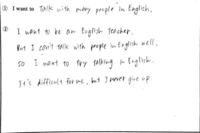 ① I want to talk with many people in English.
② I want to be an English teacher.
But I can't talk with people in English well,
so I want to try talking in English.
It's difficult for me, but I never give up.